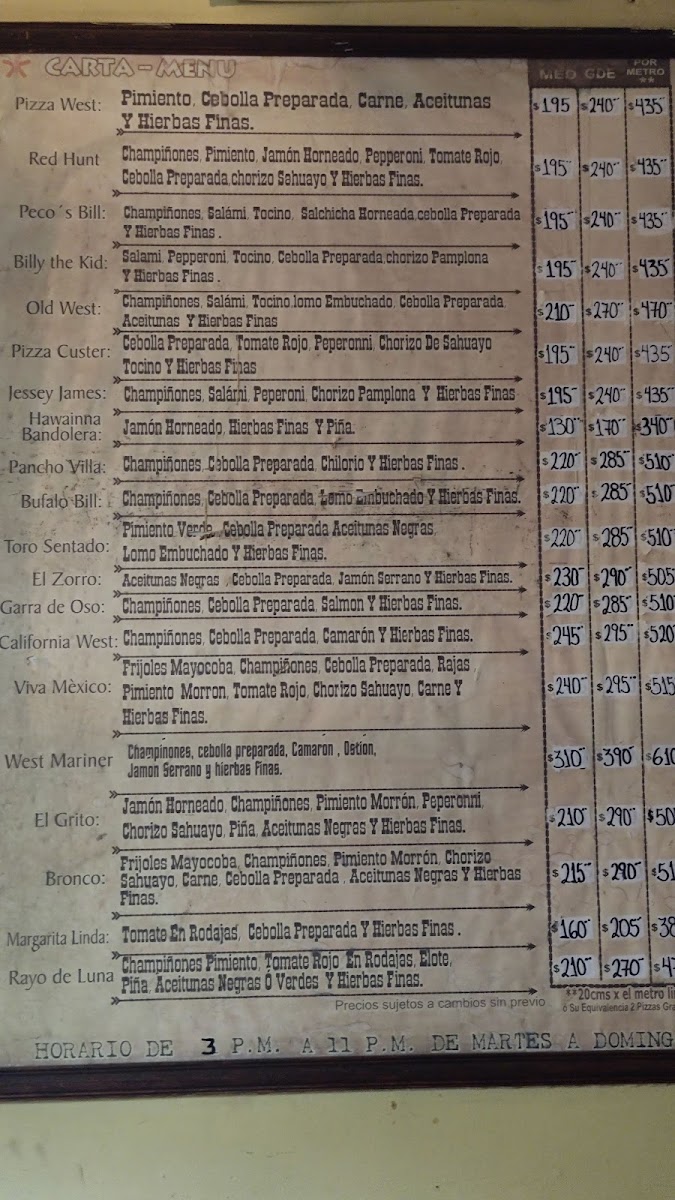 CARTA-MENU MED GDE POR METRO **
Pizza West: Pimiento, Cebolla Preparada, Carne, Aceitunas $195 $240 $435
Y Hierbas Finas.
Red Hunt Champiñones, Pimiento, Jamón Horneado, Pepperoni, Tomate Rojo, $195 $240 $435
Cebolla Preparada,chorizo Sahuayo Y Hierbas Finas.
Peco´s Bill: Champiñones, Salámi, Tocino, Salchicha Horneada,cebolla Preparada $195 $240 $435
Y Hierbas Finas .
Billy the Kid: Salami, Pepperoni, Tocino, Cebolla Preparada,chorizo Pamplona $195 $240 $435
Y Hierbas Finas .
Old West: Champiñones, Salámi, Tocino,lomo Embuchado, Cebolla Preparada, $210 $270 $470
Aceitunas Y Hierbas Finas
Pizza Custer: Cebolla Preparada, Tomate Rojo, Peperonni, Chorizo De Sahuayo $195 $240 $435
Tocino Y Hierbas Finas
Jessey James: Champiñones, Salámi, Peperoni, Chorizo Pamplona Y Hierbas Finas $195 $240 $435
Hawainna
Bandolera: Jamón Horneado, Hierbas Finas Y Piña. $130 $170 $340
Pancho Villa: Champiñones, Cebolla Preparada, Chilorio Y Hierbas Finas . $220 $285 $510
Bufalo Bill: Champiñones, Cebolla Preparada, Lomo Embuchado Y Hierbas Finas. $220 $285 $510
Toro Sentado: Pimiento Verde, Cebolla Preparada Aceitunas Negras, $220 $285 $510
Lomo Embuchado Y Hierbas Finas.
El Zorro: Aceitunas Negras , Cebolla Preparada, Jamón Serrano Y Hierbas Finas. $230 $290 $505
Garra de Oso: Champiñones, Cebolla Preparada, Salmon Y Hierbas Finas. $220 $285 $510
California West: Champiñones, Cebolla Preparada, Camarón Y Hierbas Finas. $245 $295 $520
Viva Mèxico: Frijoles Mayocoba, Champiñones, Cebolla Preparada, Rajas $240 $295 $515
Pimiento Morron, Tomate Rojo, Chorizo Sahuayo, Carne Y
Hierbas Finas.
West Mariner Champinones, cebolla preparada, Camaron , Ostion, $310 $390 $610
Jamon Serrano y hierbas Finas.
El Grito: Jamón Horneado, Champiñones, Pimiento Morrón, Peperonni, $210 $290 $50
Chorizo Sahuayo, Piña, Aceitunas Negras Y Hierbas Finas.
Bronco: Frijoles Mayocoba, Champiñones, Pimiento Morrón, Chorizo $215 $290 $51
Sahuayo, Carne, Cebolla Preparada , Aceitunas Negras Y Hierbas
Finas.
Margarita Linda: Tomate En Rodajas, Cebolla Preparada Y Hierbas Finas . $160 $205 $38
Rayo de Luna Champiñones Pimiento, Tomate Rojo En Rodajas, Elote, $210 $270 $47
Piña, Aceitunas Negras O Verdes Y Hierbas Finas.
Precios sujetos a cambios sin previo **20cms x el metro
ó Su Equivalencia 2 Pizzas
HORARIO DE 3 P.M. A 11 P.M. DE MARTES A DOMING